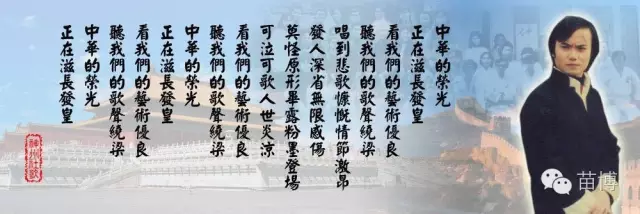 中華的榮光
正在滋長發皇
看我們的藝術優良
聽我們的歌聲繞梁
唱到悲歌慷慨情節激昂
發人深省無限感傷
莫怪原形畢露粉墨登場
可泣可歌人世炎涼
看我們的藝術優良
聽我們的歌聲繞梁
中華的榮光
正在滋長發皇
看我們的藝術優良
聽我們的歌聲繞梁
中華的榮光
正在滋長發皇
苗博